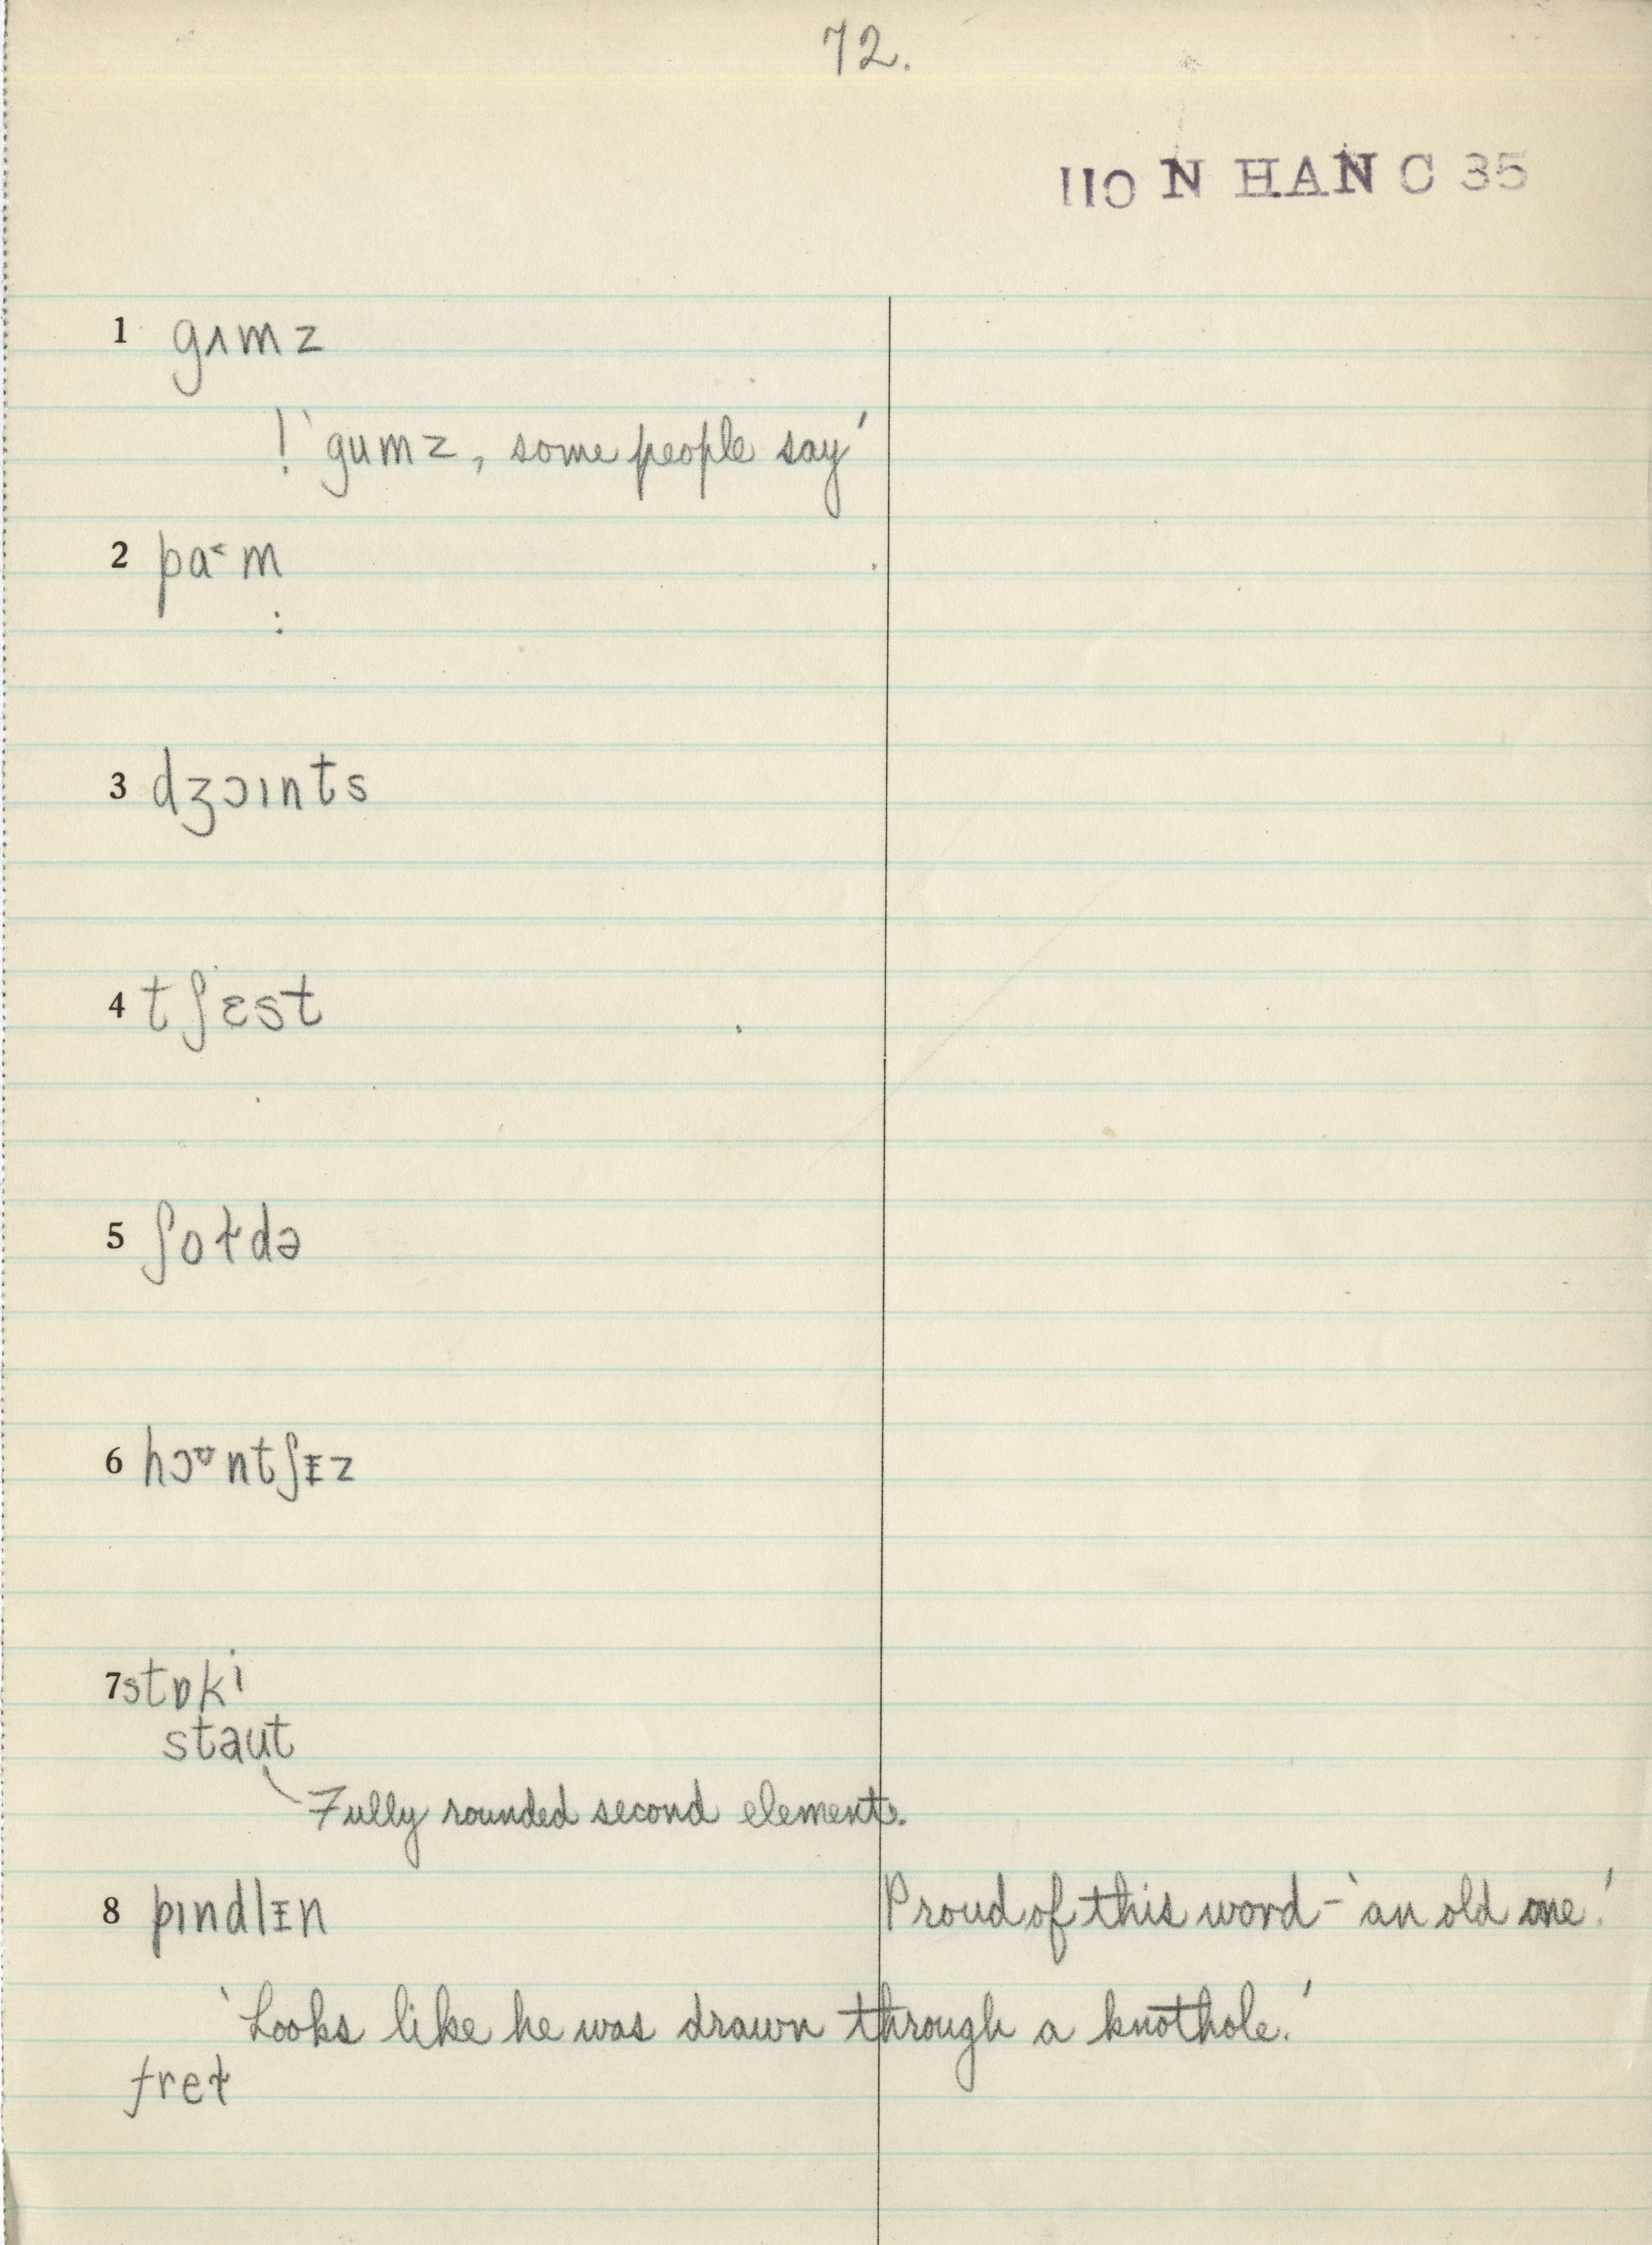 72.
110 N HAN C 35
1 gʌmz
! 'gumz, some people say'
2 pa˂m
:
3 dʒɔɪnts
4 tʃɛst
5 ʃoɫdə
6 hɔʊntʃɪz
7 stɒki
staut
Fully rounded second element.
8 pɪndlɪn Proud of this word – 'an old one.'
'Looks like he was drawn through a knothole.'
freɫ